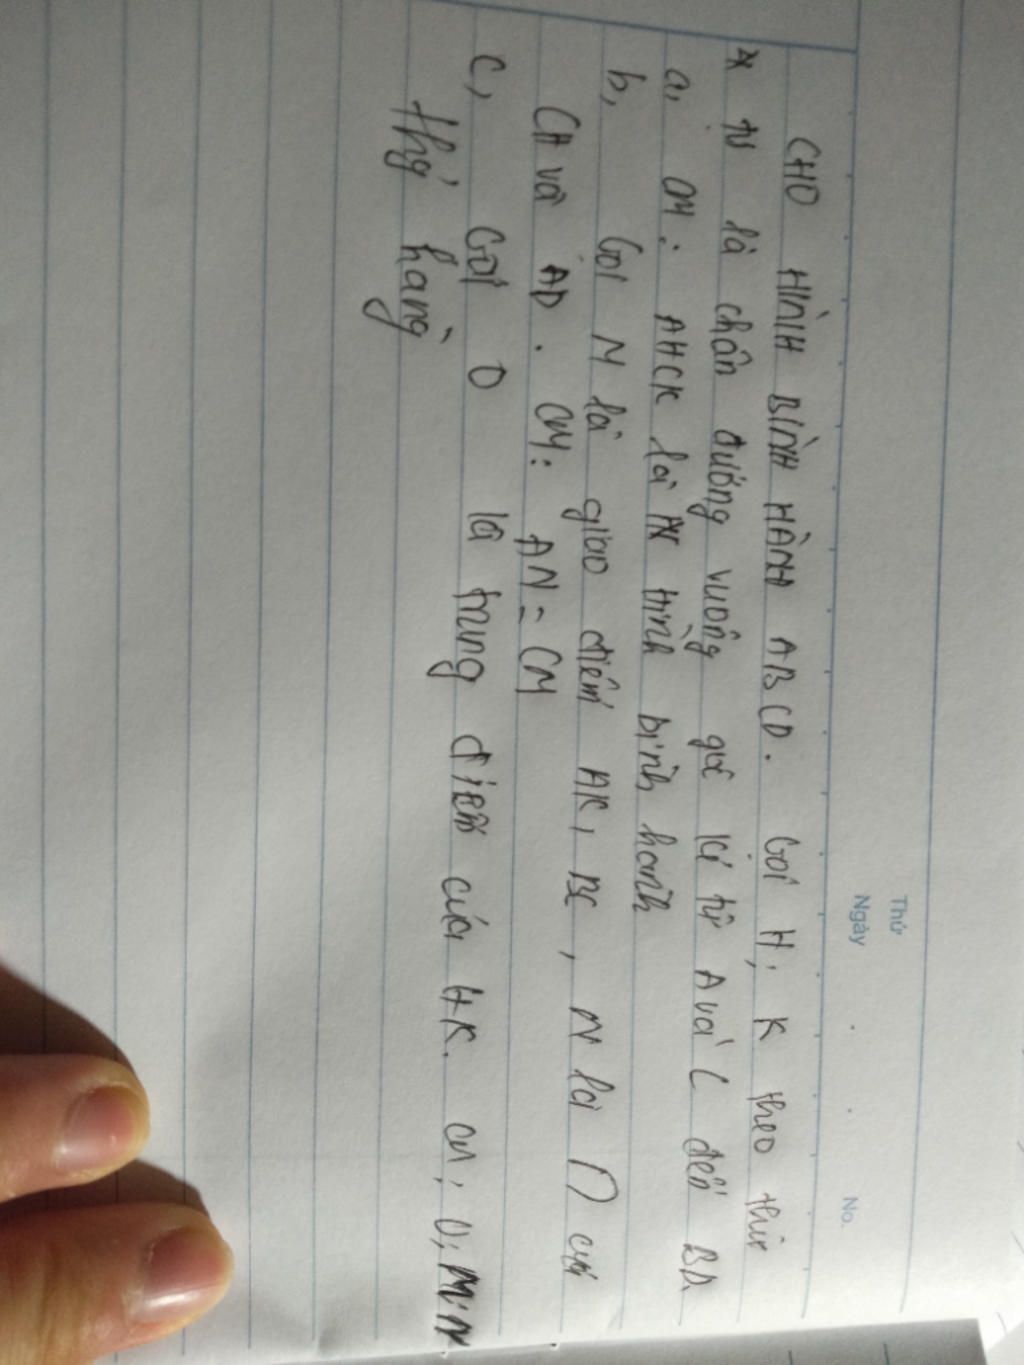 Thứ
Ngày No.
CHO HÌNH BÌNH HÀNH ABCD. Gọi H, K theo thứ
tự là chân đường vuông góc kẻ từ A và C đến BD
a, CM: AHCK là hình bình hành
b, Gọi M là giao điểm AK, BC, N là ∩ của
CH và AD. CM: AN = CM
c, Gọi O là trung điểm của HK. CM: O, M, N
thẳng hàng